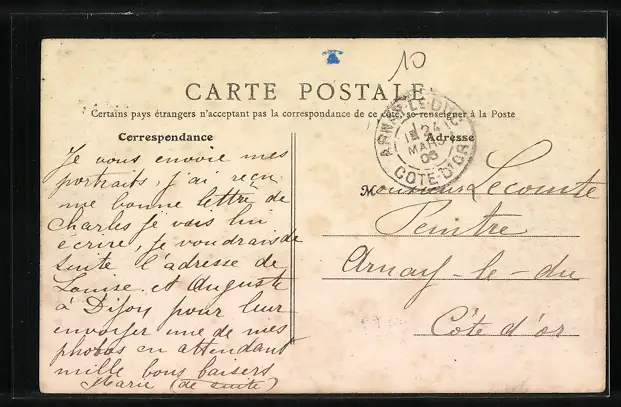 10
CARTE POSTALE
Certains pays étrangers n'acceptant pas la correspondance de ce côté, se renseigner à la Poste
Correspondance
Adresse
ARNAY-LE-DUC
24
MARS
COTE-D'OR
Je vous envoie mes
portraits, j'ai reçu
une bonne lettre de
Charles je vais lui
écrire, je voudrais de
suite l'adresse de
Louise et Auguste
à Dijon pour leur
envoyer une de mes
photos en attendant
mille bons baisers
Marie (de suite)
Monsieur Lecomte
Peintre
Arnay-le-du
Côte d'or